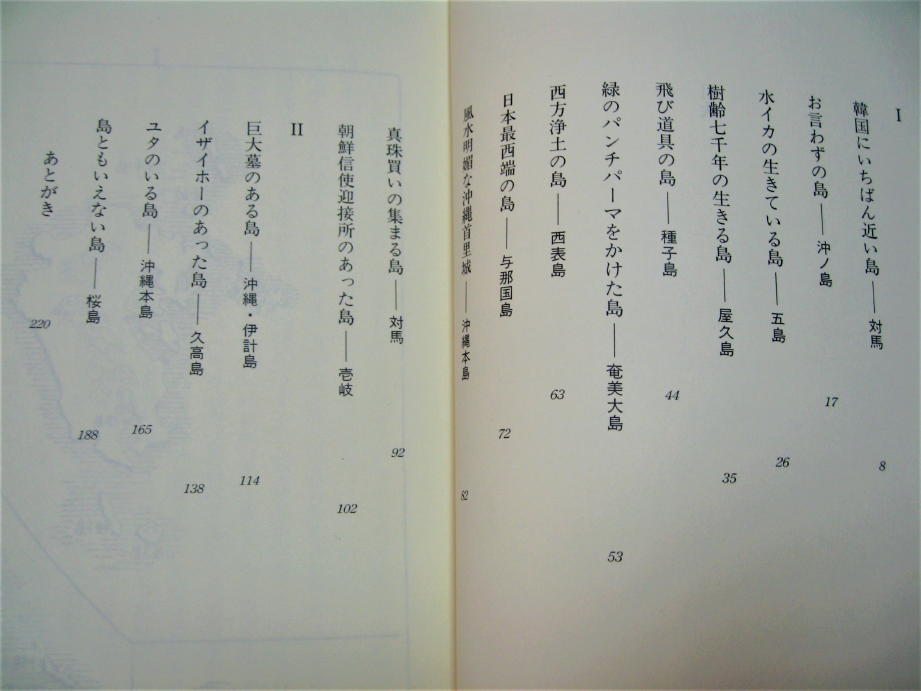 I
韓国にいちばん近い島――対馬 8
お言わずの島――沖ノ島 17
水イカの生きている島――五島 26
樹齢七千年の生きる島――屋久島 35
飛び道具の島――種子島 44
緑のパンチパーマをかけた島――奄美大島 53
西方浄土の島――西表島 63
日本最西端の島――与那国島 72
風水明媚な沖縄首里城――沖縄本島 82
真珠買いの集まる島――対馬 92
朝鮮信使迎接所のあった島――壱岐 102
II
巨大墓のある島――沖縄・伊計島 114
イザイホーのあった島――久高島 138
ユタのいる島――沖縄本島 165
島ともいえない島――桜島 188
あとがき 220